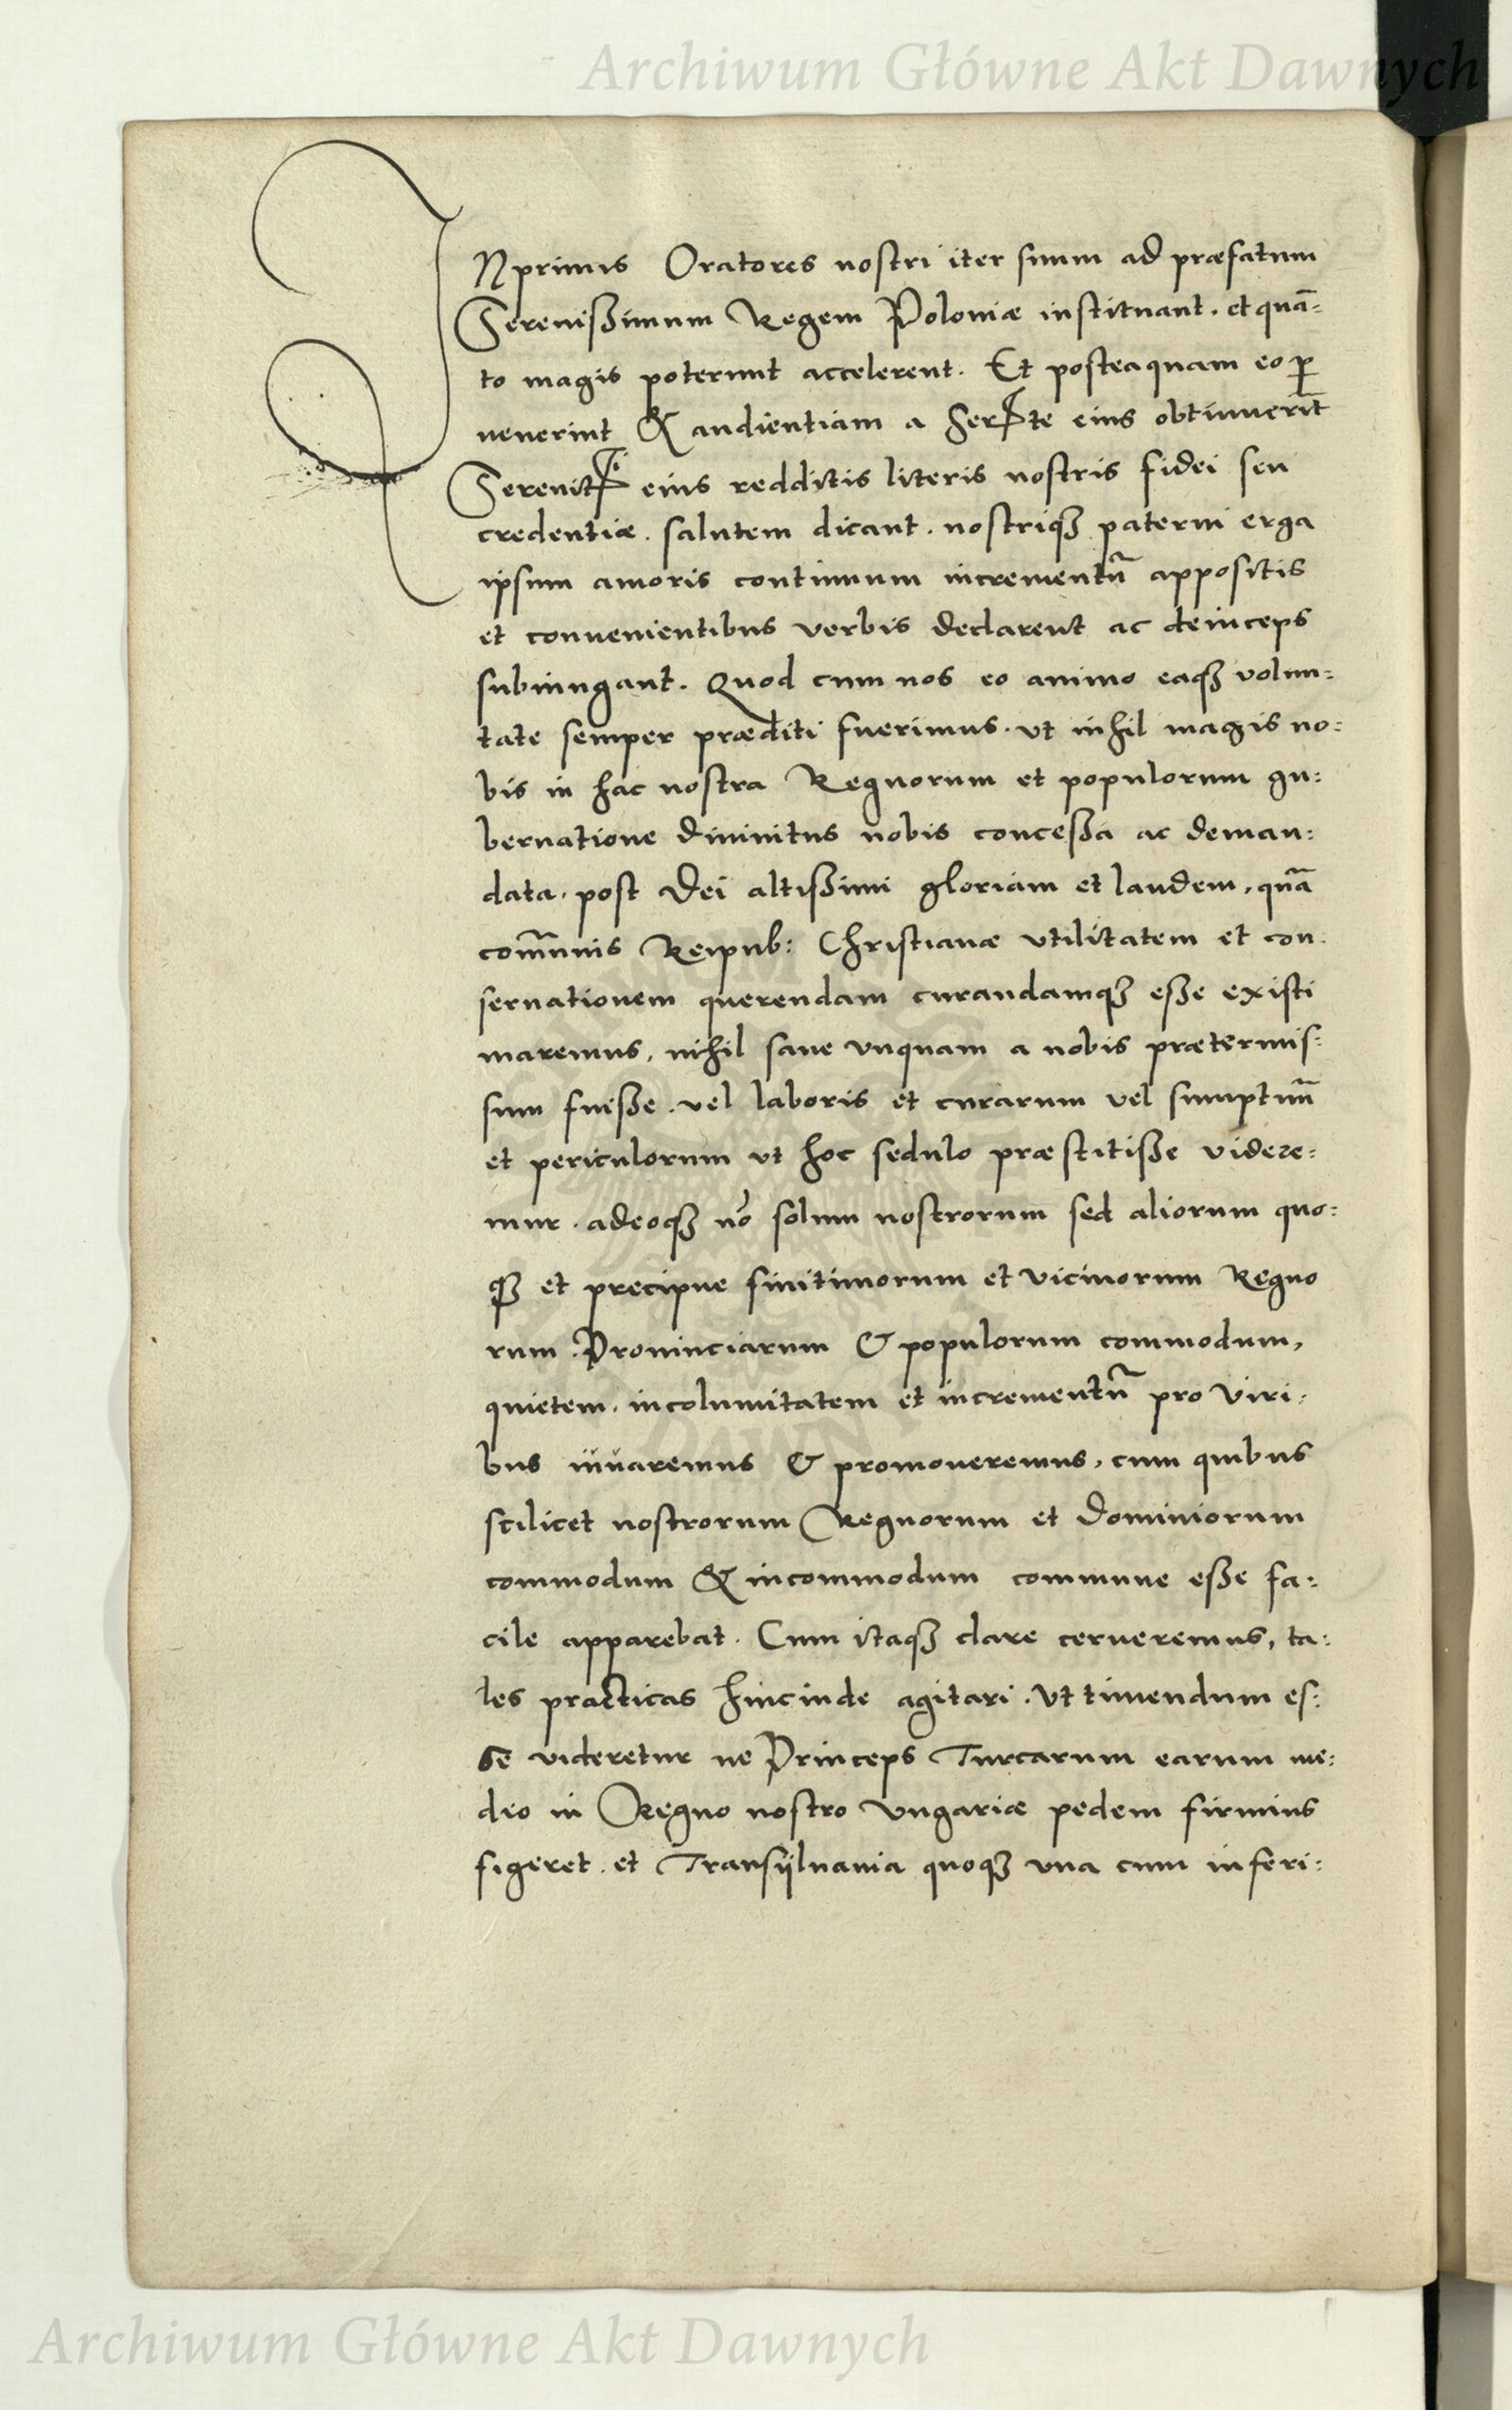 Archiwum Główne Akt Dawnych
INprimis Oratores nostri iter suum ad præfatum
Serenißimum Regem Poloniæ instituant. et quā-
to magis poterunt accelerent. Et posteaquam eo p̲
uenerint & audientiam a Serte eius obtinuerīt
Serenitⁱ eius redditis literis nostris fidei seu
credentiæ. salutem dicant. nostriqꝫ paterni erga
ipsum amoris continuum incrementū appositis
et conuenientibus verbis declarent ac deinceps
subiungant. Quod cum nos eo animo eaqꝫ volun:
tate semper præditi fuerimus. vt nihil magis no:
bis in hac nostra Regnorum et populorum gu:
bernatione diuinitus nobis conceßa ac deman:
data. post Dei altißimi gloriam et laudem, quā
com̄unis Reipub: Christianæ vtilitatem et con-
seruationem querendam curandamqꝫ eße existi
maremus, nihil sane vnquam a nobis prætermis:
sum fuiße. vel laboris et curarum vel sumptuū
et periculorum vt hoc sedulo præstitiße videre:
mur. adeoqꝫ nō solum nostrorum sed aliorum quo:
qꝫ et precipue finitimorum et vicinorum Regno
rum. Prouinciarum & populorum commodum,
quietem. incolumitatem et incrementū pro viri:
bus iuuaremus & promoueremus, cum quibus
scilicet nostrorum Regnorum et Dominiorum
commodum & incommodum commune eße fa:
cile apparebat. Cum itaqꝫ clare cerneremus, ta:
les practicas hincinde agitari. Vt timendum es:
se videretur ne Princeps Turcarum earum me:
dio in Regno nostro Vngariæ pedem firmius
figeret. et Transÿluania quoqꝫ vna cum inferi:
Archiwum Główne Akt Dawnych